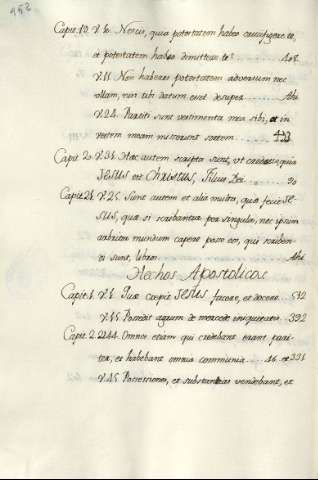 Capit. 19. V. 10. Nescis, quia potestatem habeo crucifigere te,
et potestatem habeo dimittere te? ... 408
V. 11. Non haberes potestatem adversum me
ullam, nisi tibi datum esset desuper ... Ibi
V. 24. Partiti sunt vestimenta mea sibi, et in
vestem meam miserunt sortem ... 423
Capit. 20. V. 31. Hæc autem scripta sunt, ut credatis, quia
JESUS est CHRISTUS, Filius Dei ... 90
Capit. 21. V. 25. Sunt autem et alia multa, quæ fecit JE-
SUS, quæ si scribantur per singula, nec ipsum
arbitror mundum capere posse eos, qui scriben-
di sunt, libros ... Ibi
Hechos Apostolicos
Capit. 1. V. 1. Quæ cœpit JESUS facere, et docere ... 512
V. 18. Possedit agrum de mercede iniquitatis ... 392
Capit. 2. V. 44. Omnes etiam qui credebant erant pari-
ter, et habebant omnia communia ... et 331
V. 45. Possessiones, et substantias vendebant, et